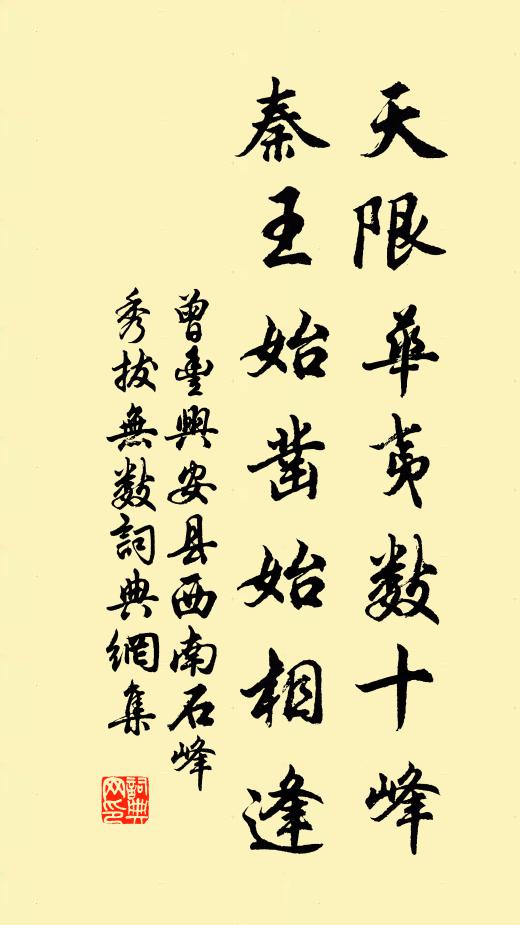 天限華夷数十峰
秦王始凿始相逢
曾豐興安县西南石峰
秀拔無数詞典網集
詞典网印